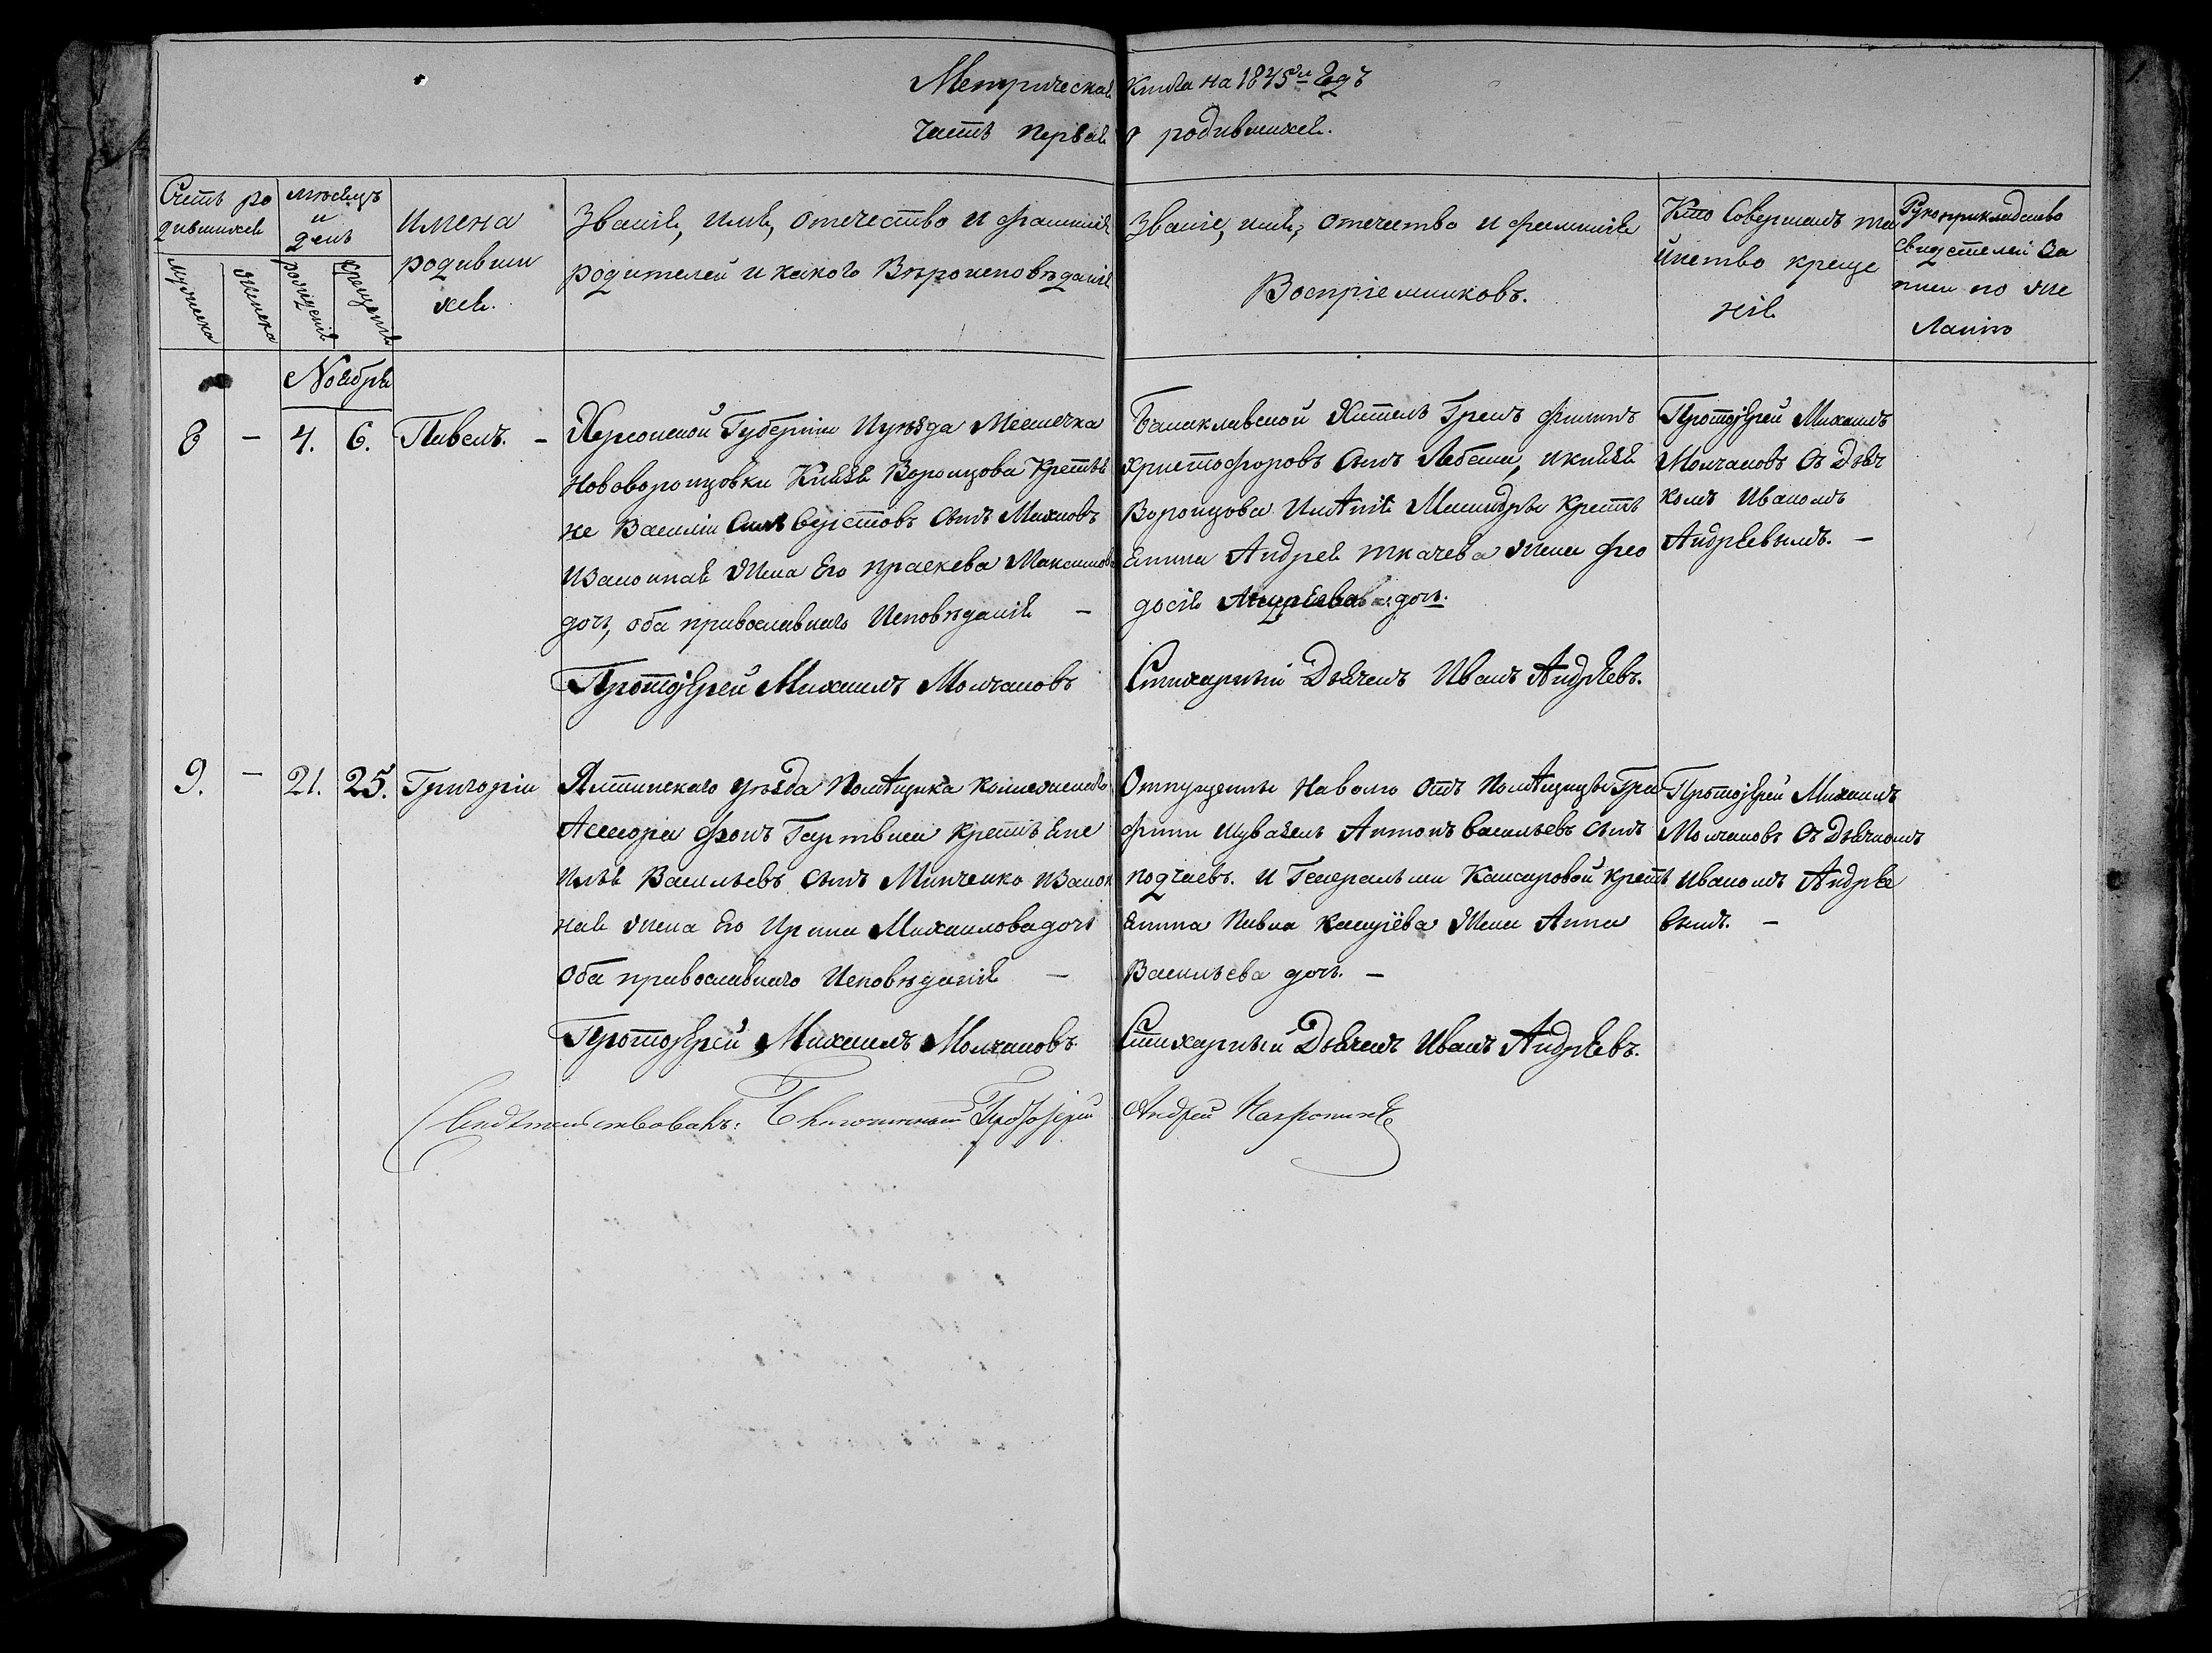 Метрическая книга на 1845й Годъ
Часть первая о родившихся.
Счетъ ро
дившихся
мужеска
женска
мѣсяцъ
и
день
рожденiя
крещенiя
Имена
родивши
хся.
Званiе, имя, отечество и фамилiя
родителей и какого Вѣроисповѣданiя
Званiе, имя, отечество и фамилiя
Воспрiемниковъ.
Кто Совершалъ та
инство креще
нiя
Рукоприкладство
свидетелей за
писи по же
ланiю
Ноября
8 — 4. 6. Павелъ. —
Херсонской Губернiи И уѣзда Местечка
Нововоронцовки Князя Воронцова Крестья
не Василiи сынъ Михновъ
И Законная Жена Его праскева Максимова
дочь, оба православнаго Исповѣданiя —
Протоiерей Михаилъ Молчановъ
Балаклавской Житель Грекъ Филипъ
христофоровъ Сынъ и князя
Воронцова Имѣнiя Крестья
Андрея ткачева Жена Фео
досiя Андрѣева дочь.
Стихарный Дьячекъ Иванъ Андрѣевъ.
Протоiерей Михаилъ
Молчановъ Съ Дьяч
комъ Иваномъ
Андрѣевымъ. —
9. — 21. 25. Григорiи
Ялтинскаго уѣзда Помѣщика Колежскаго
Асесора Фонъ Гартвиса
Илья Васильевъ Сынъ Минченко и Закон
ная Жена Его Ирина Михаилова дочь
Оба православнаго Исповѣданiя —
Протоiерей Михаилъ Молчановъ.
Отпущенны На волю Отъ Помѣщицы Гра
фини Антонъ Васильевъ Сынъ
И Генеральши Крестья
Павла Жена Анна
Васильева дочь. —
Стихарный Дьячекъ Иванъ Андрѣевъ.
Протоiерей Михаилъ
Молчановъ Съ Дьячкомъ
Иваномъ Андрѣе
вымъ. —
Свидѣтельствовалъ: Благочинный Протоiерей Андрей